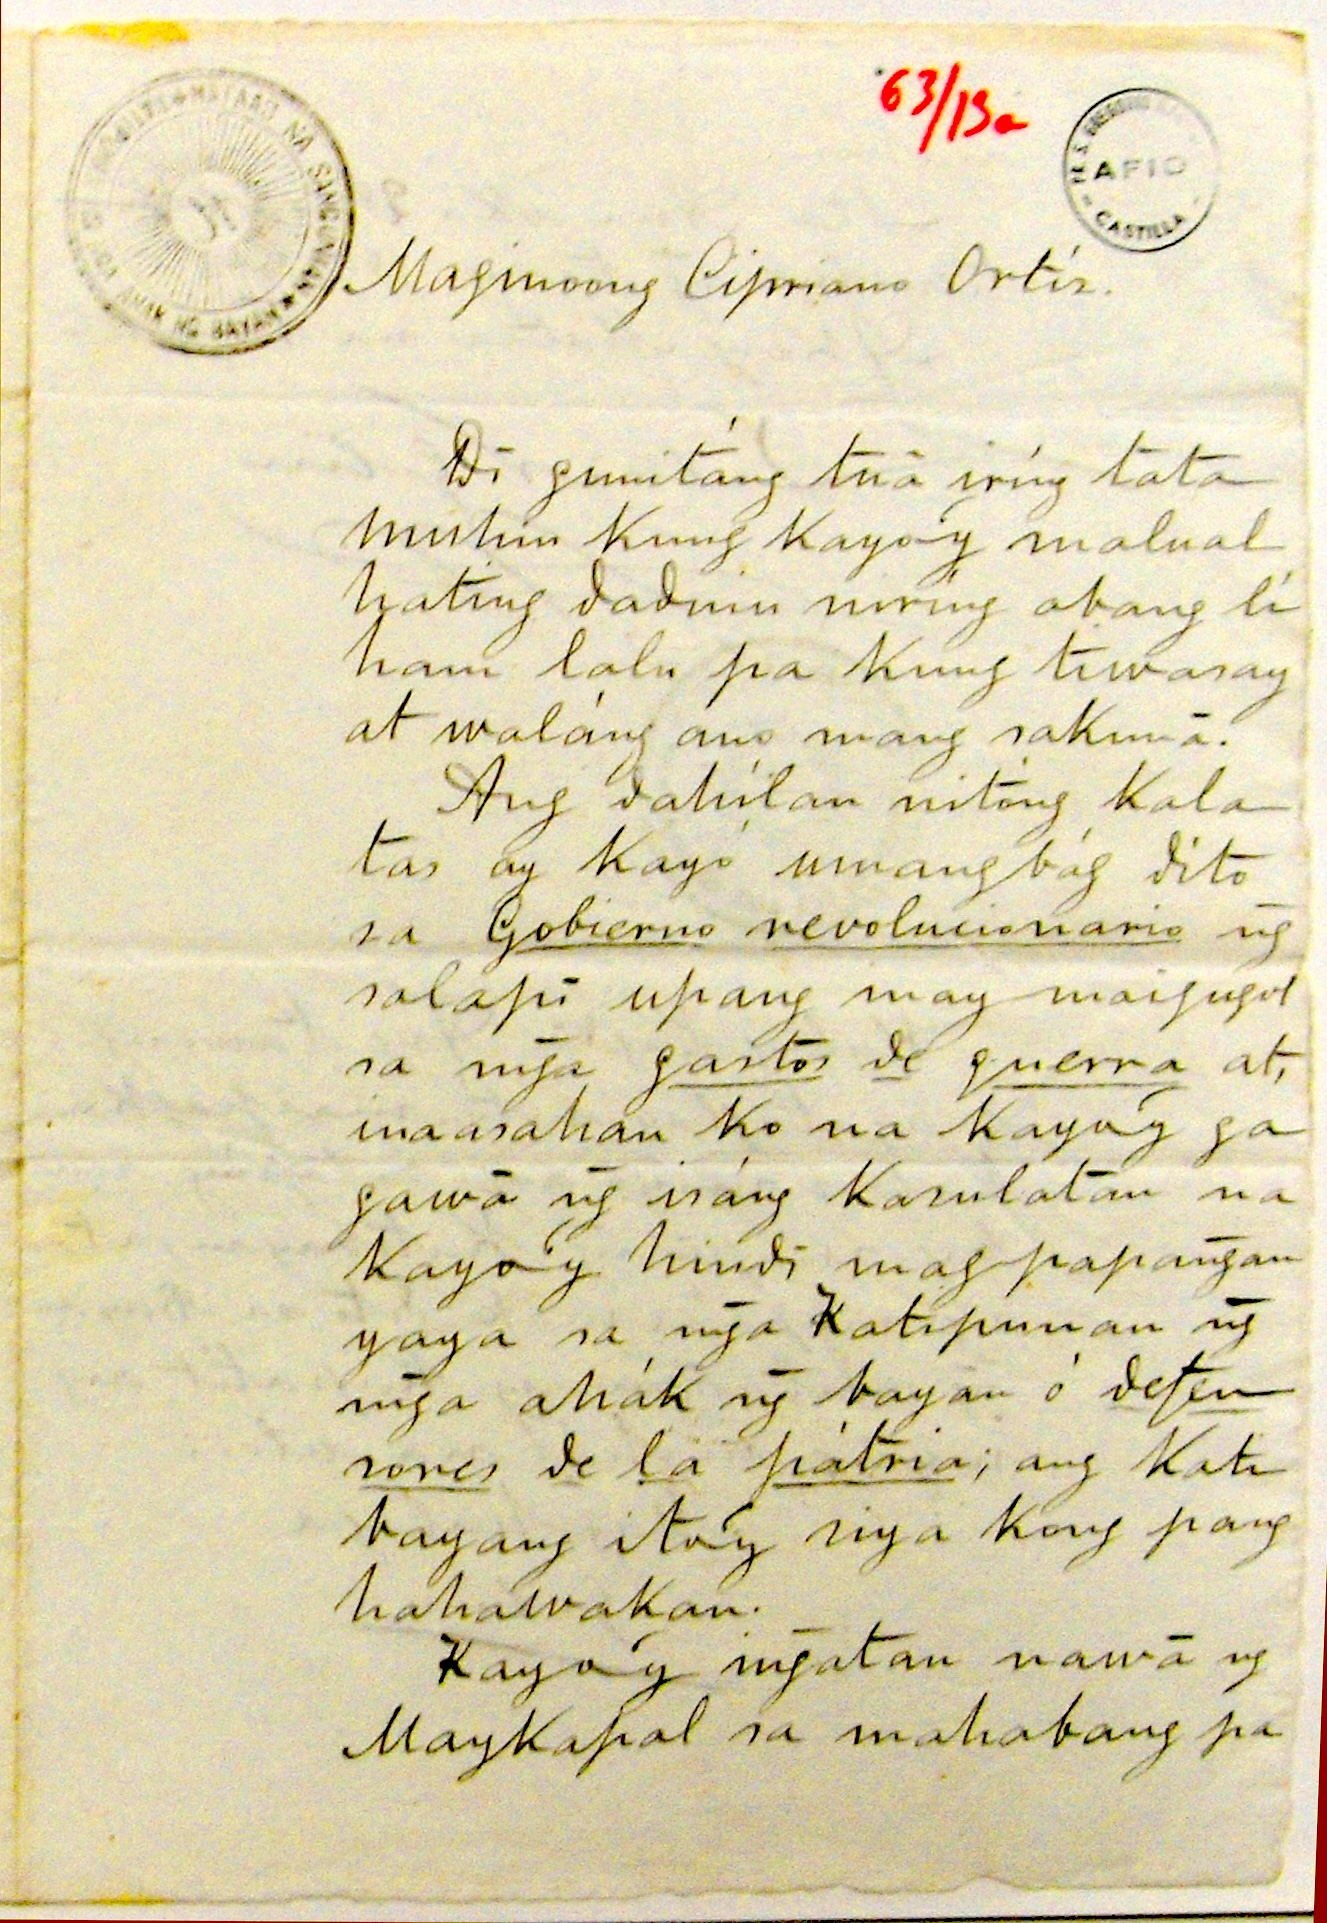 63/13a
AFIO
CASTILLA
NA
NG BAYAN
Maginoong Cipriano Ortís.
Dî gunitáng tuâ iríng tata
muhin kung kayo'y malual
hating dadnin niríng abang li
ham lalu pa kung tiwasay
at waláng ano mang sakunâ.
Ang dahílan nitóng kala
tas ay kayó umangbág dito
sa Gobierno revolucionario n̄g
salapî upang may maigugol
sa mn̄ga gastos de guerra at,
inaasahan ko na kayo'y ga
gawâ n̄g isáng kasulatan na
kayo'y hindî magpapan̄gan
yaya sa mn̄ga Katipunan n̄g
mn̄ga ahák n̄g bayan ó defen
sores de la pátria; ang kati
bayang ito'y siya kong pang
hahawakan.
Kayo'y in̄gatan nawâ ng
Maykapal sa mahabang pa